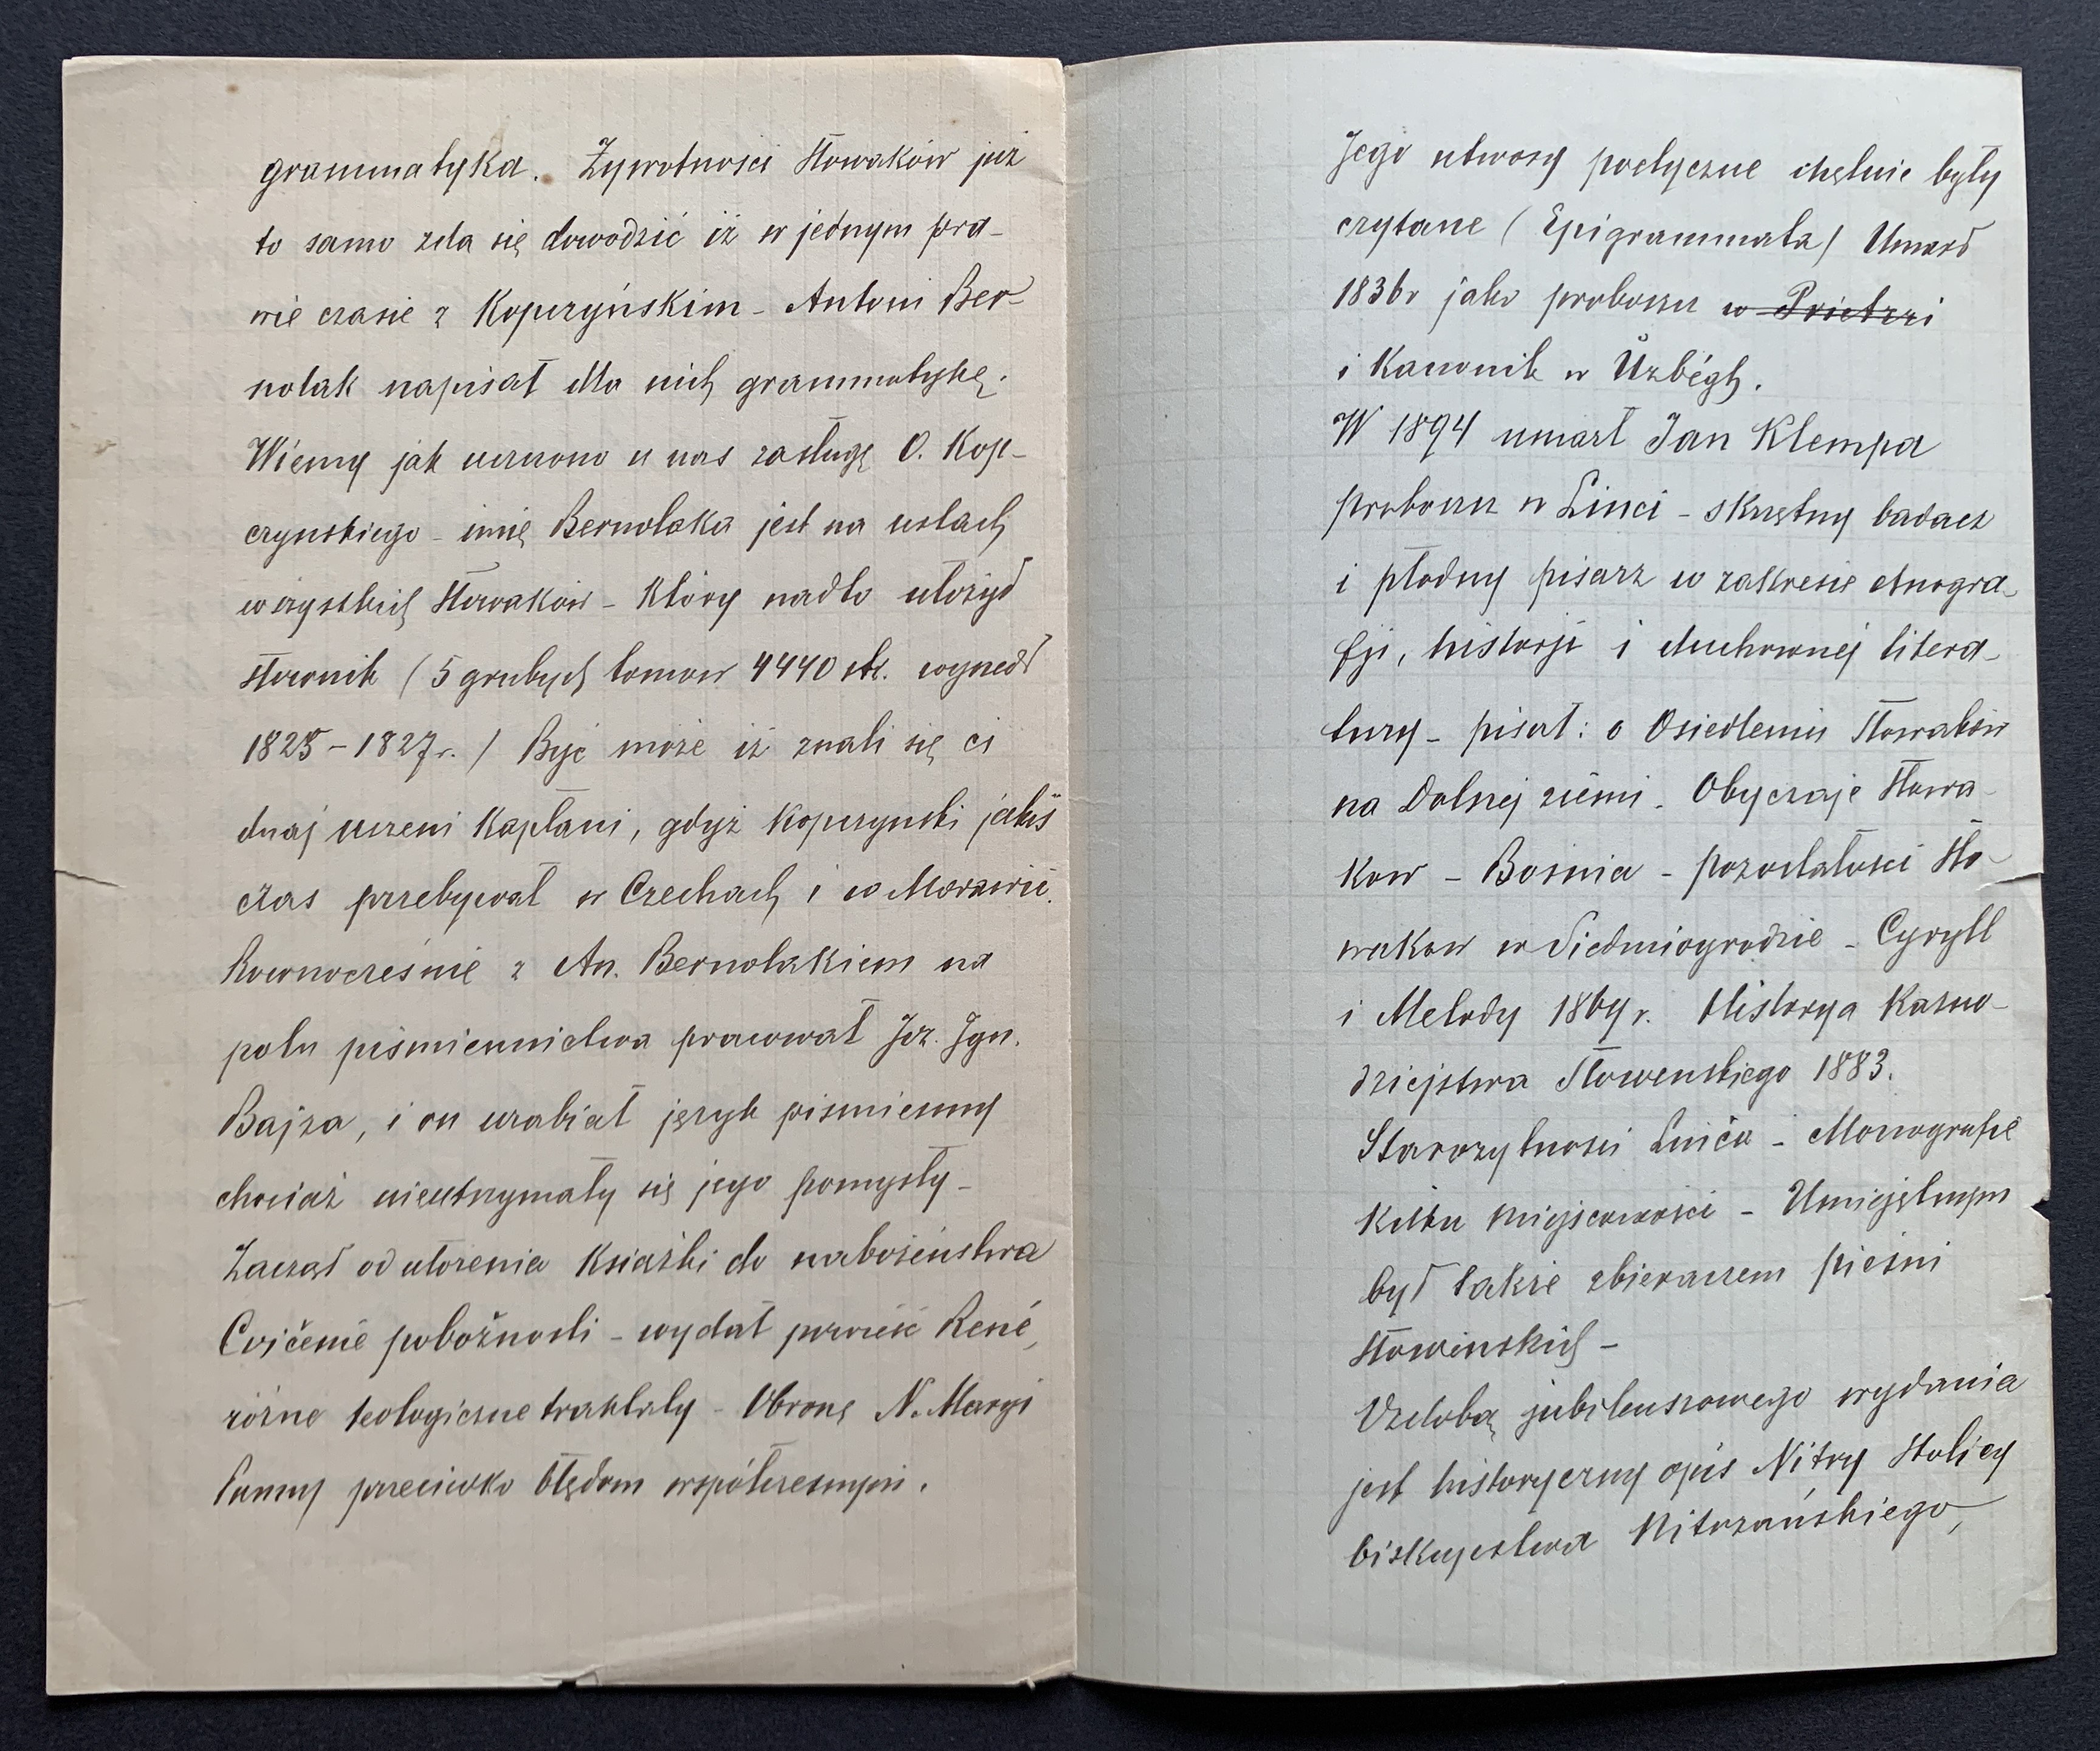 grammatyka. Żywotności Słowaków już
to samo zda się dowodzić iż w jednym pra-
wie czasie z Kopczyńskim - Antoni Ber-
nolak napisał dla nich grammatykę.
Wiemy jak uczczono u nas zasługę O. Kop-
czynskiego - imię Bernolaka jest na ustach
wszystkich Słowaków - który nadto ułożył
Słownik (5 grubych tomow 4440 str. wyszedł
1825-1827 r.) Być może iż znali się ci
dwaj uczeni Kapłani, gdyż Kopczynski jakiś
czas przebywał w Czechach i w Morawii.
Rownocześnie z An. Bernolakiem na
polu piśmiennictwa pracował Józ. Ign.
Bajza, i on urabiał język pismienny
chociaż nieutrzymały się jego pomysły -
Zaczął od ułożenia Książki do nabożeństwa
Cvičenie pobožnosti - wydał powieść René,
różne teologiczne traktaty - Obronę N. Maryi
Panny przeciwko błędom współczesnym.
Jego utwory poetyczne chętnie były
czytane (Epigrammata) Umarł
1836 r jako proboszcz w Prietrzi
i Kanonik w Űzbégh.
W 1894 umarł Jan Klempa
proboszcz w Linci - skrzętny badacz
i płodny pisarz w zakresie etnogra-
fji, historji i duchownej litera-
tury - pisał: o Osiedleniu Słowaków
na Dolnej ziemi - Obyczaje Słowa-
kow - Bośnia - pozostałości Sło-
wakow w Siedmiogrodzie - Cyryll
i Metody 1864 r. Historya Kazno-
dziejstwa Słowenskiego 1883.
Starozytności - Monografie
kilku miejscowości - Umiejętnym
był także zbieraczem pieśni
Słowinskich -
Ozdobą jubileuszowego wydania
jest historyczny opis Nitry Stolicy
biskupstwa Nitrzańskiego,